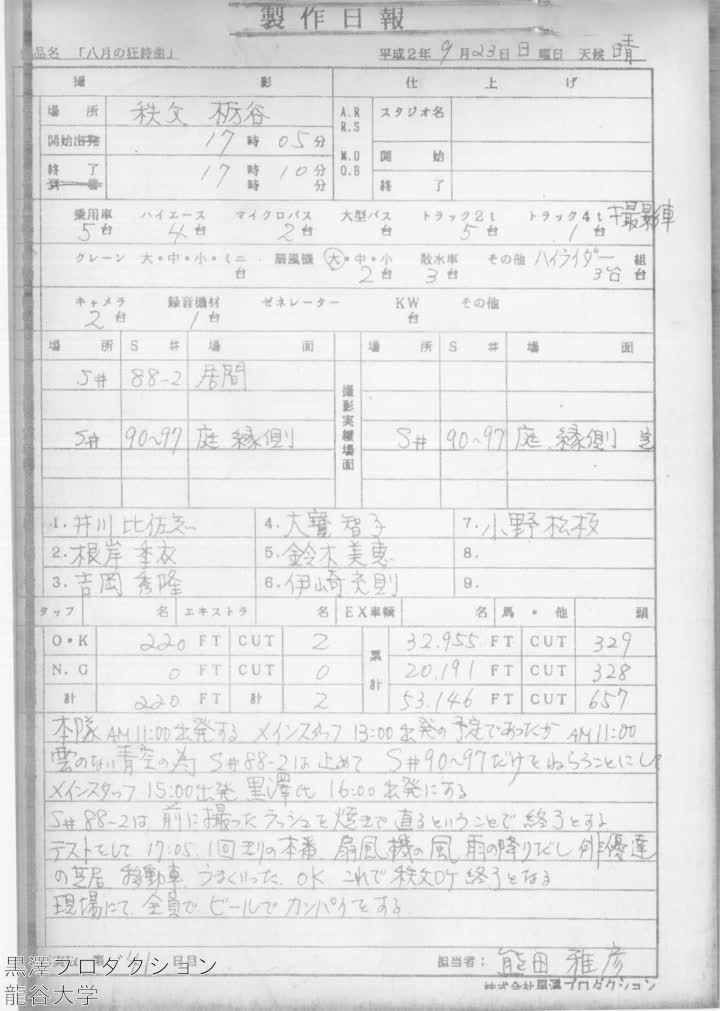 製作日報
品名 「八月の狂詩曲」 平成2年 9月23日 日曜日 天候 晴
撮影 仕上げ
場所 秩父 栃谷 A.R R.S スタジオ名
開始出発 17時05分
M.O O.B 開始
終了 17時10分
到着 時 分 終了
乗用車 ハイエース マイクロバス 大型バス トラック2t トラック4t +撮影車
5台 4台 2台 台 5台 1台
クレーン 大・中・小・ミニ 扇風機 大・中・小 散水車 その他 ハイライダー 組
台 2台 3台 3台 台
キャメラ 録音機材 ゼネレーター KW その他
2台 1台 台
場所 S# 場面 撮影実績場面 場所 S# 場面
S# 88-2 居間
S# 90~97 庭 縁側 S# 90~97 庭、縁側
1. 井川 比佐志 4. 大寶 智子 7. 小野 松枝
2. 根岸 季衣 5. 鈴木 美恵 8.
3. 吉岡 秀隆 6. 伊崎 充則 9.
タッフ 名 エキストラ 名 EX車輌 名 馬・他 頭
O・K 220 FT CUT 2 累計 32.955 FT CUT 329
N.G 0 FT CUT 0 20.191 FT CUT 328
計 220 FT 計 2 53.146 FT CUT 657
本隊 AM11:00出発する メインスタッフ 13:00出発の予定であったが AM11:00
雲のない青空の為 S#88-2は止めて S#90~97だけをねらうことにし
メインスタッフ 15:00出発 黒澤氏 16:00出発にする
S#88-2は 前に撮ったラッシュを焼きで直るということで終了とする
テストをして 17:05. 1回走りの本番 扇風機の風 雨の降りだし 俳優達
の芝居 移動車 うまくいった. OK これで秩父ロケ終了となる
現場にて 全員で ビールで カンパイをする
実数 第 日目 担当者: 熊田 雅彦
株式会社黒澤プロダクション
黒澤プロダクション
龍谷大学